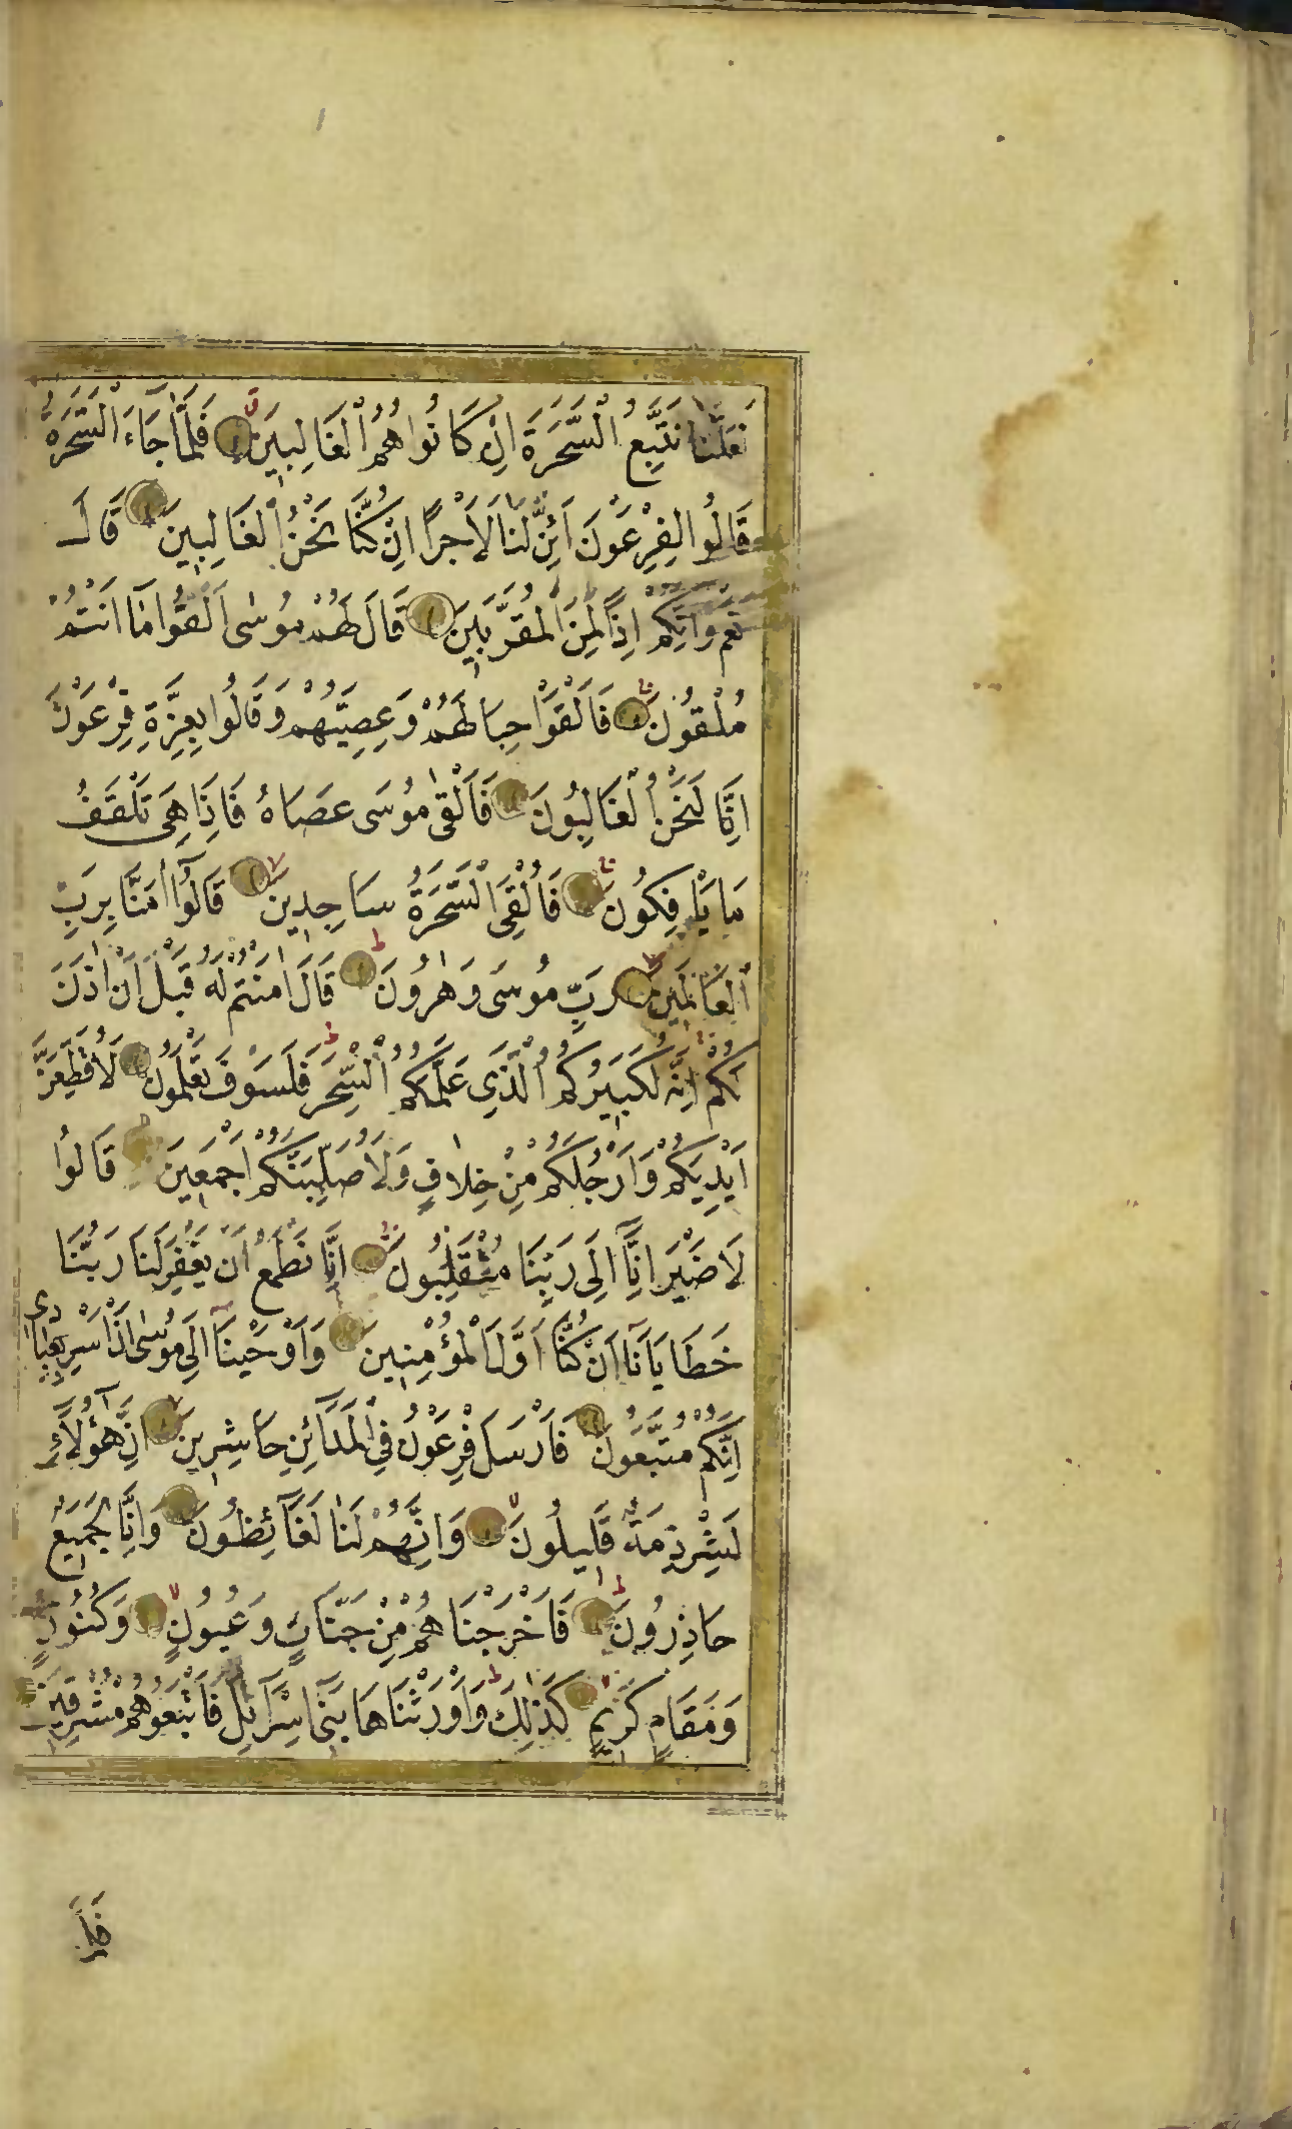 لَعَلَّنَا نَتَّبِعُ السَّحَرَةَ اِنْ كَانُوا هُمُ الْغَالِبِينَ فَلَمَّا جَاءَ السَّحَرَةُ
قَالُوا لِفِرْعَوْنَ اَئِنَّ لَنَا لَاَجْرًا اِنْ كُنَّا نَحْنُ الْغَالِبِينَ قَالَ
نَعَمْ وَاِنَّكُمْ اِذًا لَمِنَ الْمُقَرَّبِينَ قَالَ لَهُمْ مُوسٰى اَلْقُوا مَا اَنْتُمْ
مُلْقُونَ فَاَلْقَوْا حِبَالَهُمْ وَعِصِيَّهُمْ وَقَالُوا بِعِزَّةِ فِرْعَوْنَ
اِنَّا لَنَحْنُ الْغَالِبُونَ فَاَلْقٰى مُوسَى عَصَاهُ فَاِذَا هِيَ تَلْقَفُ
مَا يَاْفِكُونَ فَاُلْقِيَ السَّحَرَةُ سَاجِدِينَ قَالُوا اٰمَنَّا بِرَبِّ
الْعَالَمِينَ رَبِّ مُوسَى وَهٰرُونَ قَالَ اٰمَنْتُمْ لَهُ قَبْلَ اَنْ اٰذَنَ
لَكُمْ اِنَّهُ لَكَبِيرُكُمُ الَّذِي عَلَّمَكُمُ السِّحْرَ فَلَسَوْفَ تَعْلَمُونَ لَاُقَطِّعَنَّ
اَيْدِيَكُمْ وَاَرْجُلَكُمْ مِنْ خِلَافٍ وَلَاُصَلِّبَنَّكُمْ اَجْمَعِينَ قَالُوا
لَا ضَيْرَ اِنَّا اِلَى رَبِّنَا مُنْقَلِبُونَ اِنَّا نَطْمَعُ اَنْ يَغْفِرَ لَنَا رَبُّنَا
خَطَايَانَا اَنْ كُنَّا اَوَّلَ الْمُؤْمِنِينَ وَاَوْحَيْنَا اِلَى مُوسٰى اَنْ اَسْرِ بِعِبَادِي
اِنَّكُمْ مُتَّبَعُونَ فَاَرْسَلَ فِرْعَوْنُ فِي الْمَدَائِنِ حَاشِرِينَ اِنَّ هٰؤُلَاءِ
لَشِرْذِمَةٌ قَلِيلُونَ وَاِنَّهُمْ لَنَا لَغَائِظُونَ وَاِنَّا لَجَمِيعٌ
حَاذِرُونَ فَاَخْرَجْنَاهُمْ مِنْ جَنَّاتٍ وَعُيُونٍ وَكُنُوزٍ
وَمَقَامٍ كَرِيمٍ كَذٰلِكَ وَاَوْرَثْنَاهَا بَنِي اِسْرَائِلَ فَاَتْبَعُوهُمْ مُشْرِقِينَ
فَلَمَّا